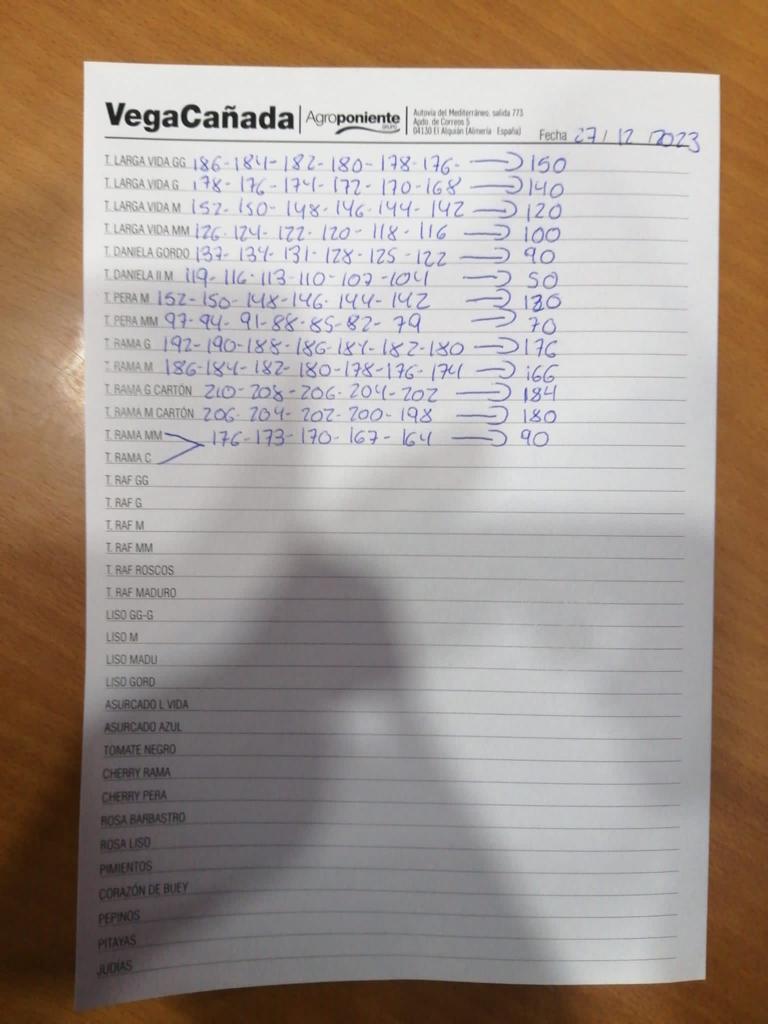 VegaCañada Agroponiente GRUPO Autovía del Mediterráneo, salida 773
Apdo. de Correos 5
04130 El Alquián (Almería España) Fecha 27/12/2023
T. LARGA VIDA GG 186-184-182-180-178-176- → 150
T. LARGA VIDA G 178-176-174-172-170-168 → 140
T. LARGA VIDA M 152-150-148-146-144-142 → 120
T. LARGA VIDA MM 126-124-122-120-118-116 → 100
T. DANIELA GORDO 137-134-131-128-125-122 → 90
T. DANIELA II M 119-116-113-110-107-104 → 50
T. PERA M 152-150-148-146-144-142 → 130
T. PERA MM 97-94-91-88-85-82-79 → 70
T. RAMA G 192-190-188-186-184-182-180 → 176
T. RAMA M 186-184-182-180-178-176-174 → 166
T. RAMA G CARTÓN 210-208-206-204-202 → 184
T. RAMA M CARTÓN 206-204-202-200-198 → 180
T. RAMA MM 176-173-170-167-164 → 90
T. RAMA C
T. RAF GG
T. RAF G
T. RAF M
T. RAF MM
T. RAF ROSCOS
T. RAF MADURO
LISO GG-G
LISO M
LISO MADU
LISO GORD
ASURCADO L VIDA
ASURCADO AZUL
TOMATE NEGRO
CHERRY RAMA
CHERRY PERA
ROSA BARBASTRO
ROSA LISO
PIMIENTOS
CORAZÓN DE BUEY
PEPINOS
PITAYAS
JUDÍAS